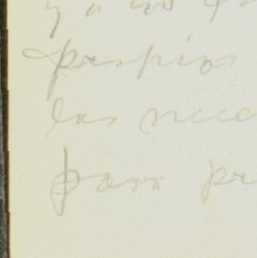 y a los
propios
las nece
para pr